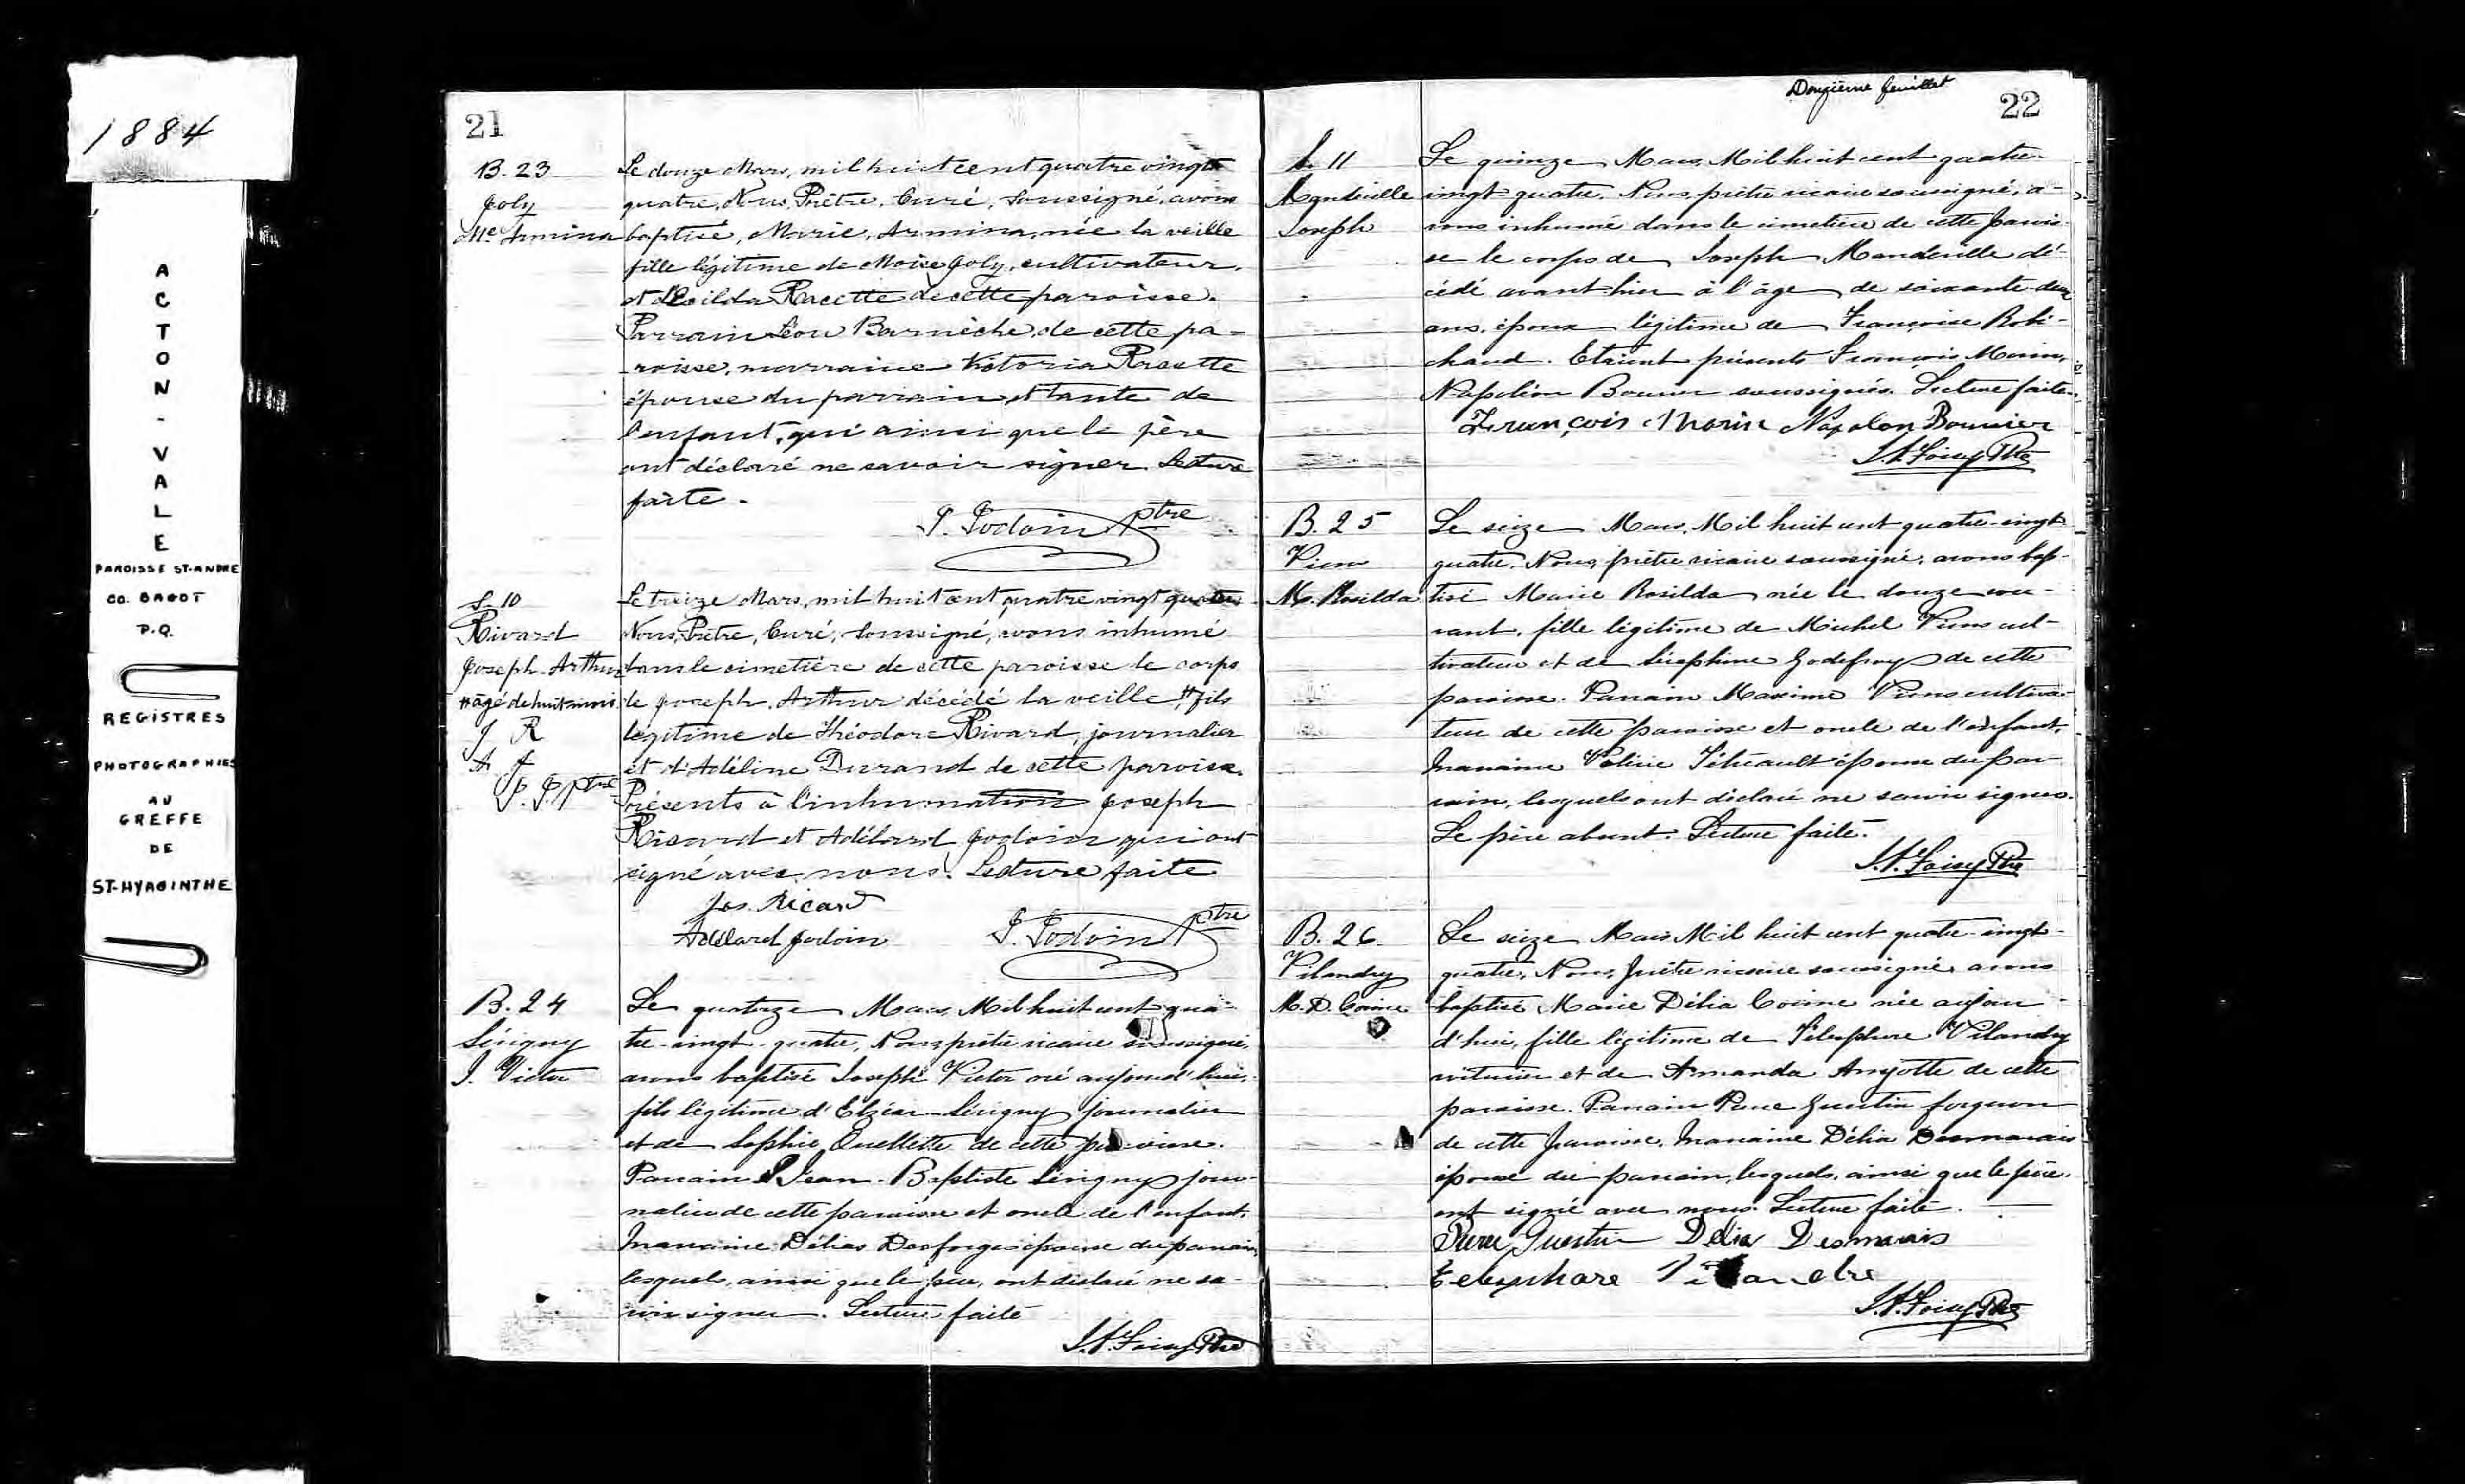 1884
ACTON-VALE
PAROISSE ST-ANDRE
CO. BAGOT
P.Q.
REGISTRES
PHOTOGRAPHIES
AU
GREFFE
DE
ST-HYACINTHE
21
B. 23
Joly
Mie Armina
Le douze Mars, mil huit cent quatre vingt
quatre, Nous, Prêtre, Curé, soussigné, avons
baptisé, Marie, Armina, née la veille
fille légitime de Moïse Joly, cultivateur,
et d'Exilda Racette de cette paroisse.
Parrain Léon Barnèche, de cette pa-
roisse, marraine Victoria Racette
épouse du parrain, et tante de
l'enfant, qui ainsi que le père
ont déclaré ne savoir signer. Lecture
faite.
P. Godoin Ptre
S. 10
Rivard
Joseph Arthur
# âgé de huit mois
J R
A J
Ptre
Le treize Mars, mil huit cent quatre vingt quatre
Nous, Prêtre, Curé, soussigné, avons inhumé
dans le cimetière de cette paroisse le corps
de Joseph, Arthur décédé la veille, # fils
légitime de Théodore Rivard, journalier
et d'Adéline Durand de cette paroisse.
Présents à l'inhumation Joseph
Ricard et Adélard Jodoin qui ont
signé avec nous. Lecture faite
Jos. Ricard
Adelard Jodoin
P. Godoin Ptre
B. 24
Sévigny
J. Victor
Le quatorze Mars, Mil huit cent qua-
tre-vingt-quatre, Nous, prêtre vicaire soussigné,
avons baptisé Joseph Victor né aujourd'hui,
fils légitime d'Elzéar Sévigny journalier
et de Sophie Ouellette de cette paroisse.
Parrain Jean-Baptiste Sévigny jour-
nalier de cette paroisse et oncle de l'enfant,
Marraine Délias Desforges épouse du parrain,
lesquels, ainsi que le père, ont déclaré ne sa-
voir signer. Lecture faite
Ptre
Douzième feuillet
22
S. 11
Mandeville
Joseph
Le quinze Mars, Mil huit cent quatre-
vingt quatre, Nous, prêtre vicaire soussigné, a-
vons inhumé dans le cimetière de cette parois-
se le corps de Joseph Mandeville dé-
cédé avant-hier à l'âge de soixante-deux
ans, époux légitime de Françoise Robi-
chaud. Etaient présents François Morin,
Napoléon Bounier soussignés. Lecture faite.
François Morin Napolon Bounier
Ptre
B. 25
Viens
M. Rosilda
Le seize Mars, Mil huit cent quatre-vingt-
quatre, Nous, prêtre vicaire soussigné, avons bap-
tisé Marie Rosilda née le douze cou-
rant, fille légitime de Michel Viens cul-
tivateur et de Séraphine Godefroy de cette
paroisse. Parrain Maxime Viens cultiva-
teur de cette paroisse et oncle de l'enfant,
Marraine Tétreault épouse du par-
rain, lesquels ont déclaré ne savoir signer.
Le père absent. Lecture faite.
Ptre
B. 26
Vilandry
M. D. Corinne
Le seize Mars Mil huit cent quatre-vingt-
quatre, Nous, prêtre vicaire soussigné avons
baptisé Marie Délia Corinne née aujour-
d'hui, fille légitime de Télesphore Vilandry
voiturier et de Amanda Amyotte de cette
paroisse. Parrain Pierre Guertin forgeron
de cette paroisse, Marraine Délia Desmarais
épouse du parrain, lesquels, ainsi que le père,
ont signé avec nous. Lecture faite.
Pierre Guertin Délia Desmarais
Telesphore
Ptre